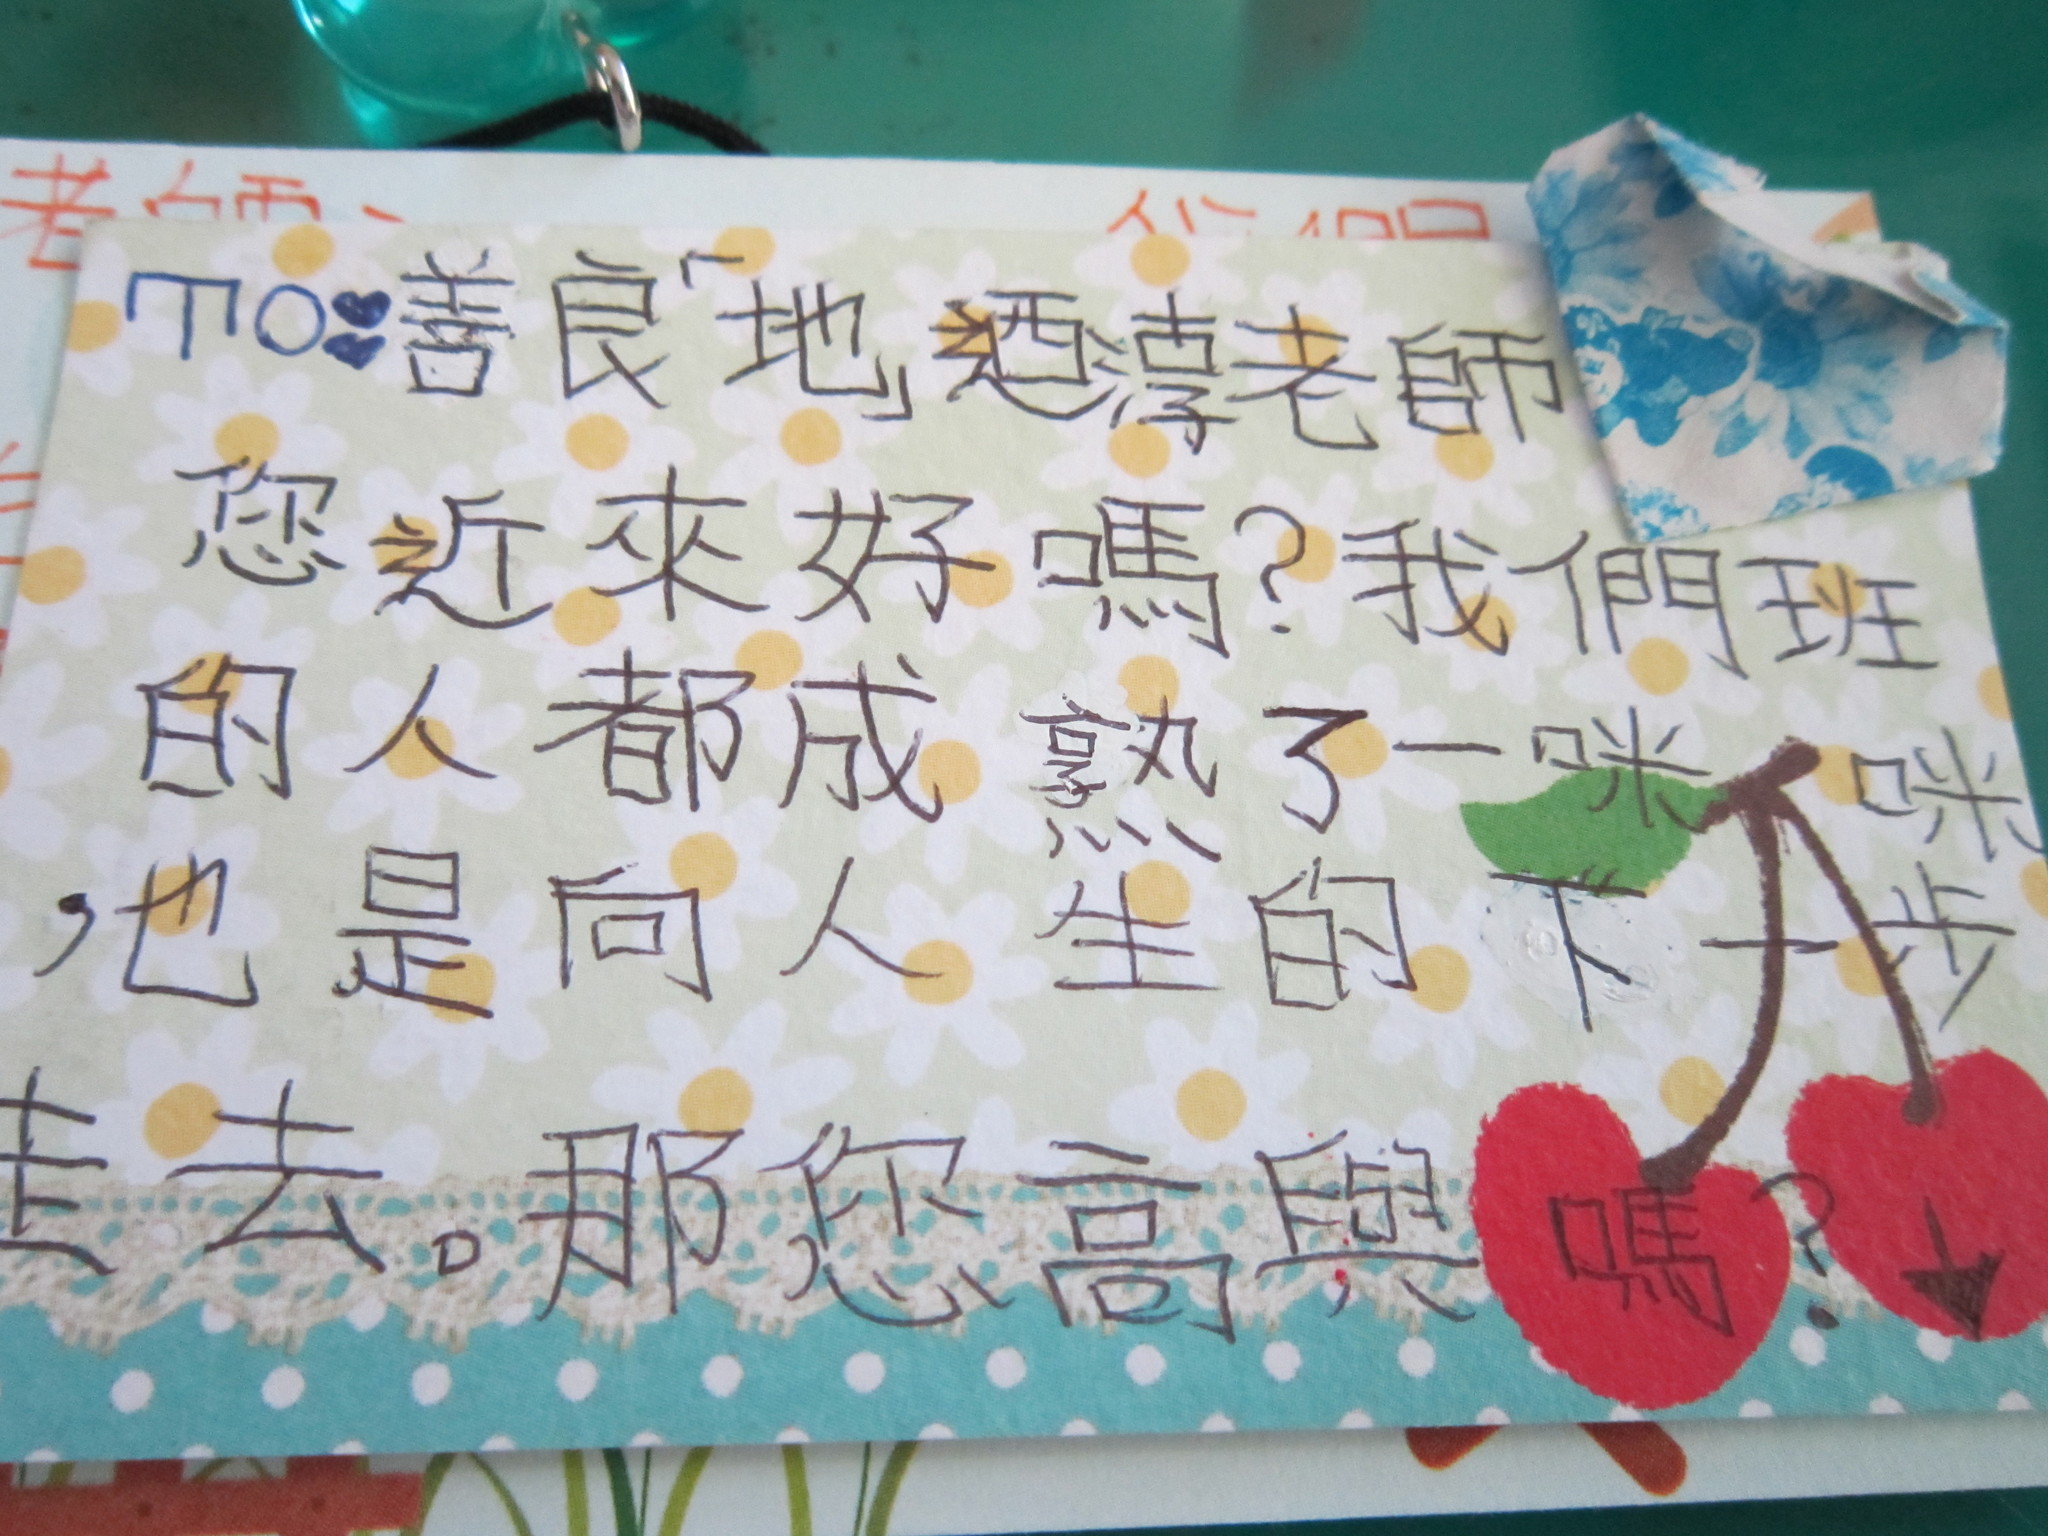 老師
TO:善良「地」迺淳老師
您近來好嗎?我們班
的人都成熟了一咪咪
,也是向人生的下一步
走去。那您高興嗎?↓